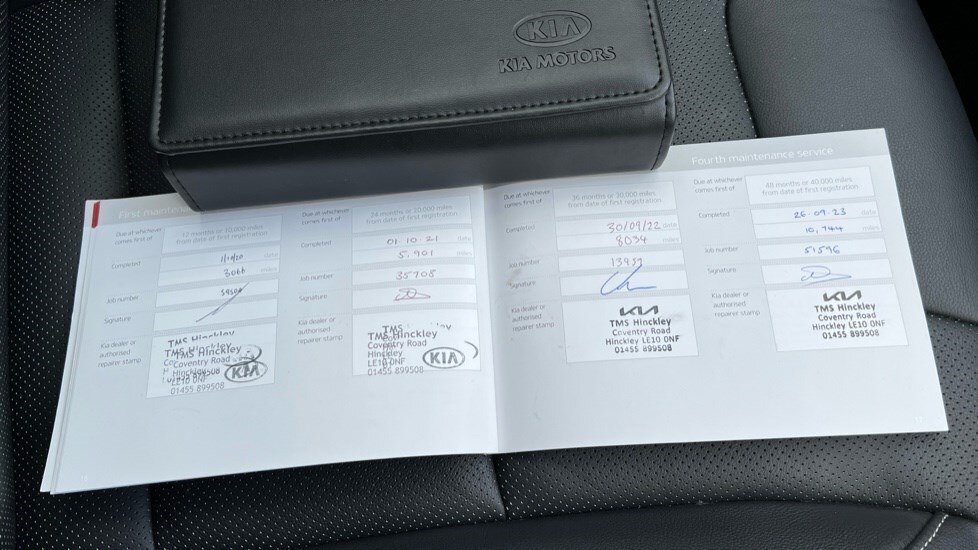 KIA
KIA MOTORS
First mainten
Due at whichever
comes first of
12 months or 10,000 miles
from date of first registration
Completed
1/10/20 date
3066 miles
Job number
Signature
Kia dealer or
authorised
repairer stamp
TMS Hinckley
TMS Hinckley
Hinckley
LE10 0NF
01455 899508
KIA
Due at whichever
comes first of
24 months or 20,000 miles
from date of first registration
Completed
01.10.21 date
5,901 miles
Job number
35708
Signature
Kia dealer or
authorised
repairer stamp
TMS Hinckley
Coventry Road
Hinckley
LE10 0NF
01455 899508
KIA
Due at whichever
comes first of
36 months or 30,000 miles
from date of first registration
Completed
30/09/22 date
8034 miles
Job number
13953
Signature
Kia dealer or
authorised
repairer stamp
KIA
TMS Hinckley
Coventry Road
Hinckley LE10 0NF
01455 899508
Fourth maintenance service
Due at whichever
comes first of
48 months or 40,000 miles
from date of first registration
Completed
26.09.23 date
10,744 miles
Job number
51596
Signature
Kia dealer or
authorised
repairer stamp
KIA
TMS Hinckley
Coventry Road
Hinckley LE10 0NF
01455 899508